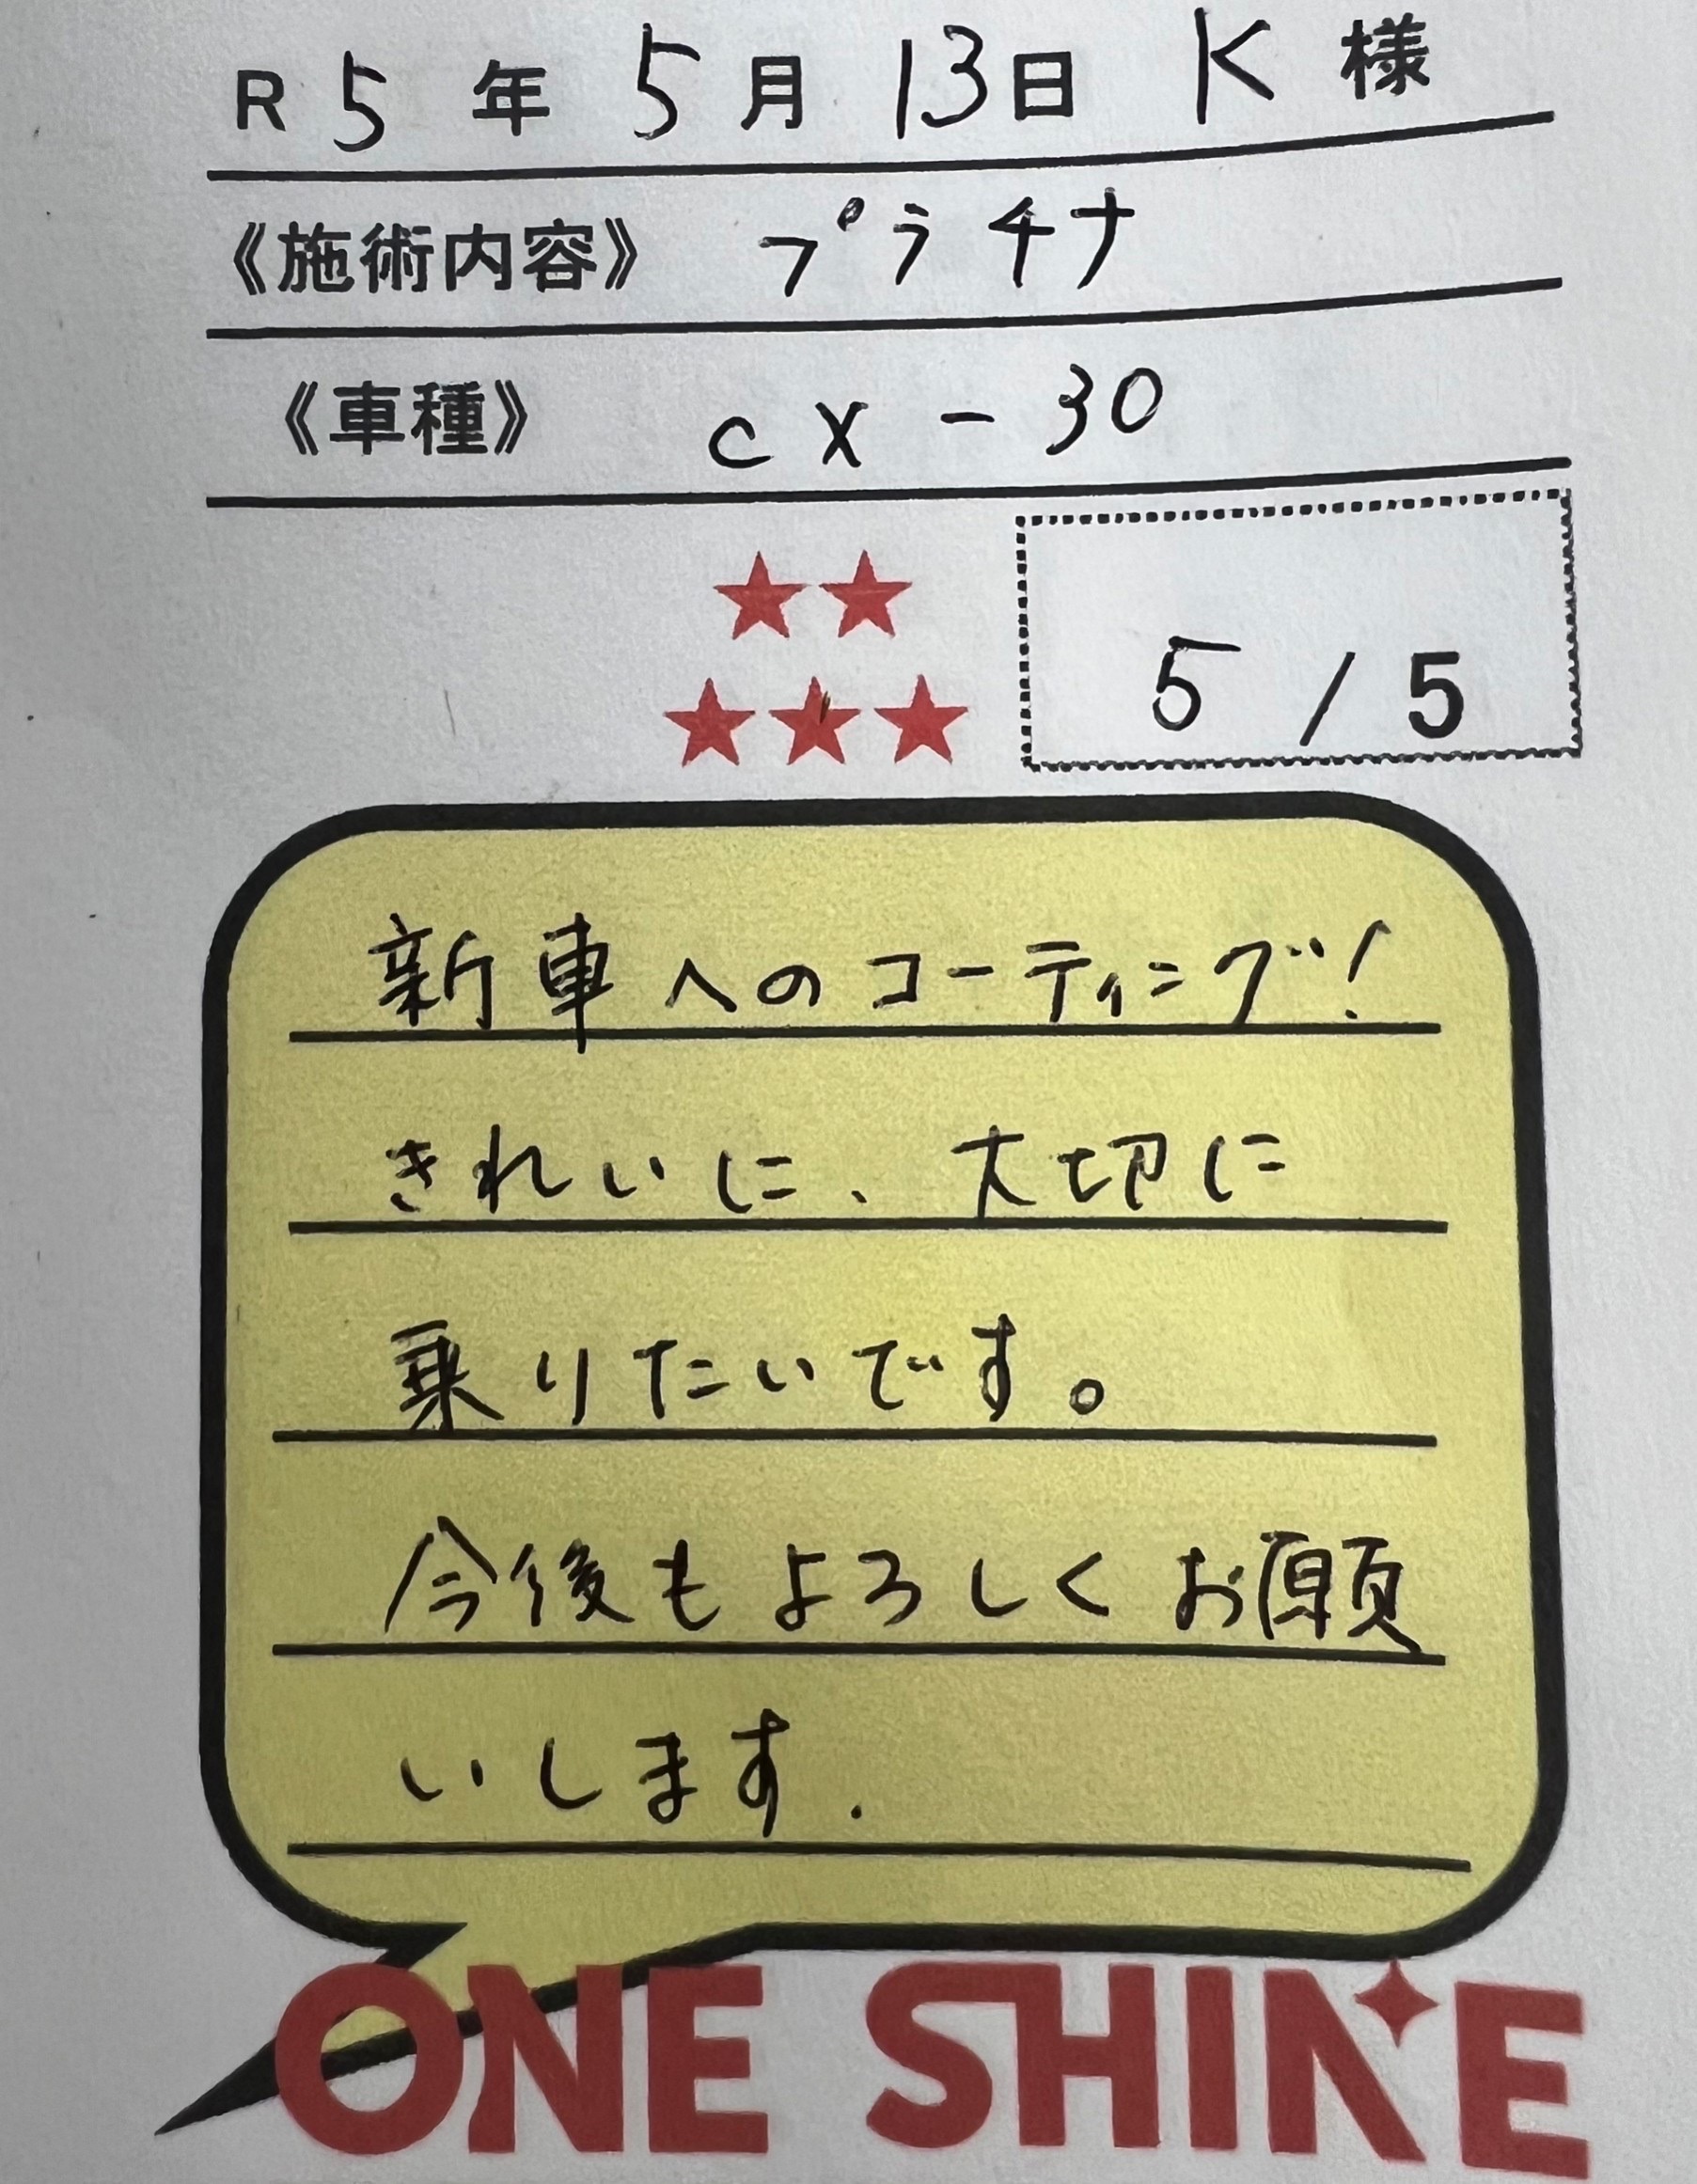 R5年5月13日 K様
《施術内容》 プラチナ
《車種》 CX-30
★★
★★★
5/5
新車へのコーティング!
きれいに、大切に
乗りたいです。
今後もよろしくお願
いします.
ONE SHINE